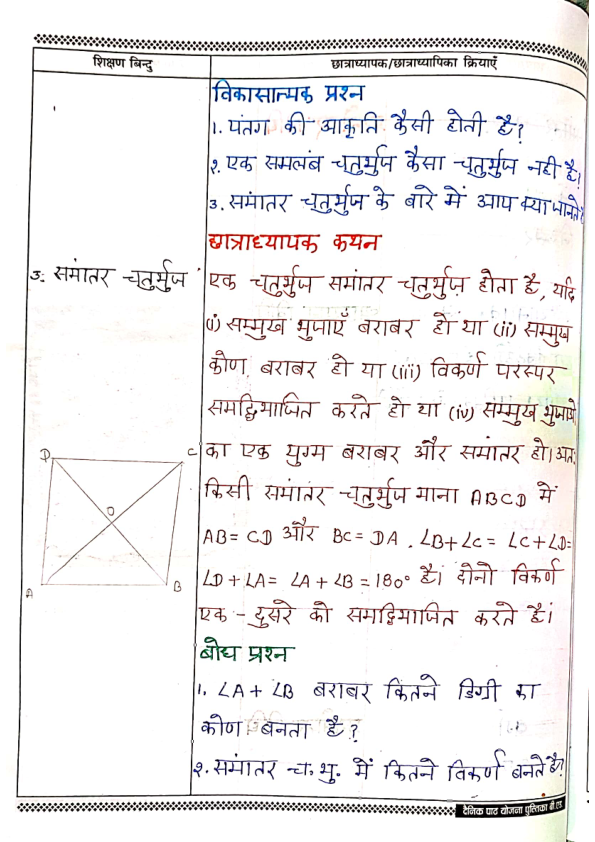 शिक्षण बिन्दु
छात्राध्यापक/छात्राध्यापिका क्रियाएँ
विकासात्मक प्रश्न
1. पंतग की आकृति कैसी होती है?
२. एक समलंब चतुर्भुज कैसा चतुर्भुज नही है।
3. समांतर चतुर्भुज के बारे में आप क्या जानते है
छात्राध्यापक कथन
3. समांतर चतुर्भुज
एक चतुर्भुज समांतर चतुर्भुज होता है, यदि
(i) सम्मुख भुजाएँ बराबर हो या (ii) सम्मुख
कोण बराबर हो या (iii) विकर्ण परस्पर
समद्विभाजित करते हो या (iv) सम्मुख भुजाओ
का एक युग्म बराबर और समांतर हो। अतः
किसी समांतर चतुर्भुज माना ABCD में
AB = CD और BC = DA . ∠B+∠C = ∠C+∠D=
∠D+∠A= ∠A+∠B=180° है। दोनो विकर्ण
एक - दुसरे को समद्विभाजित करते है।
D
C
O
A
B
बोध प्रश्न
1. ∠A+ ∠B बराबर कितने डिग्री का
कोण बनता है?
२. समांतर च. भु. में कितने विकर्ण बनते है?
दैनिक पाठ योजना पुस्तिका बी.एड